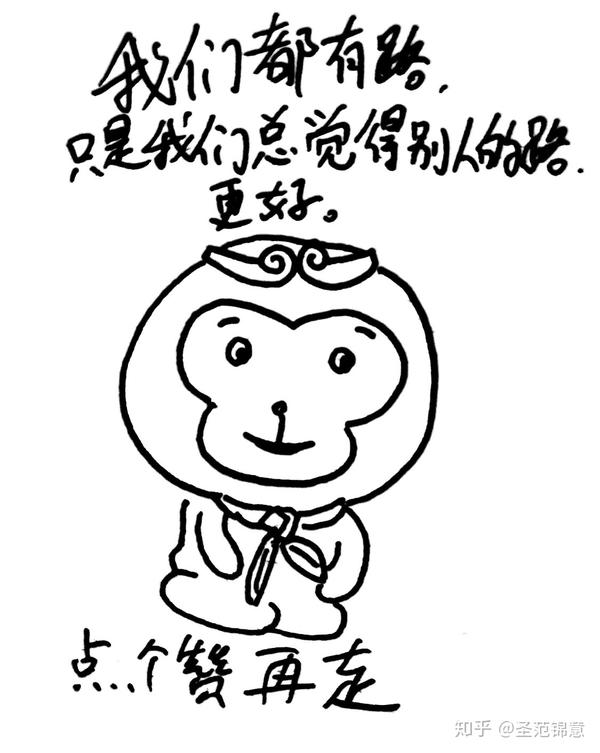 我们都有路,
只是我们总觉得别人的路.
更好。
点个赞再走
知乎 @圣范锦意